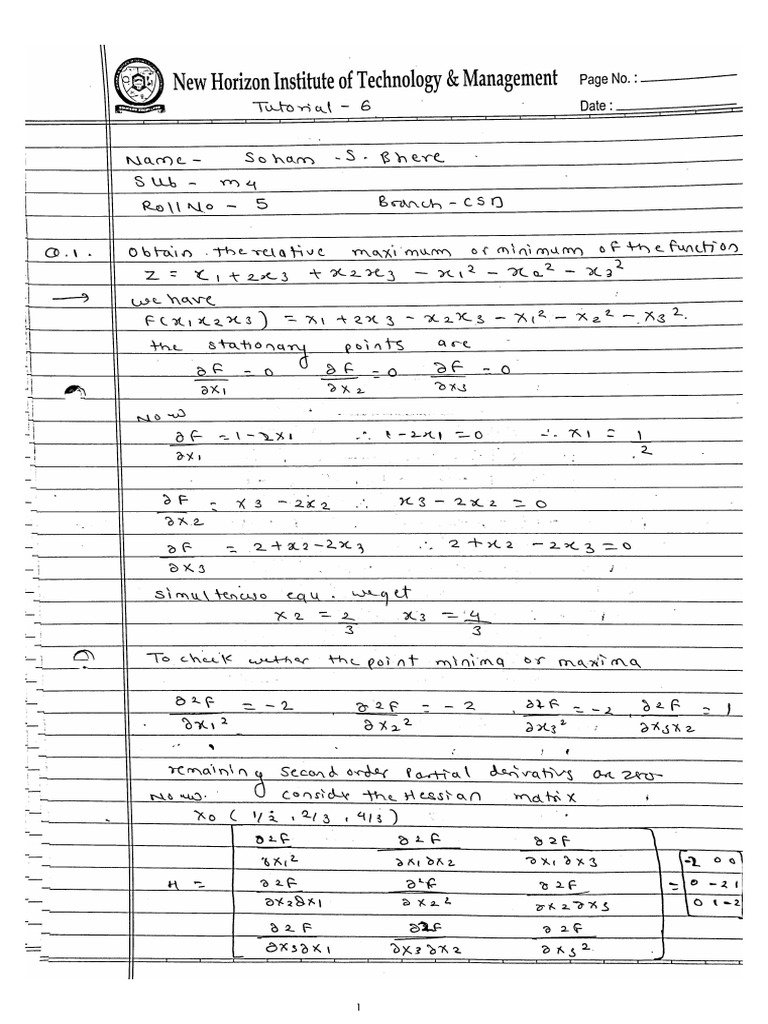 New Horizon Institute of Technology & Management Page No. :
Tutorial - 6 Date :
Name - Soham - S. Bhere
Sub - m4
Roll No - 5 Branch - CSD
Q.1. Obtain the relative maximum or minimum of the function
Z = x1 + 2x3 + x2x3 - x1² - x2² - x3²
→ we have
F(x1x2x3) = x1 + 2x3 - x2x3 - x1² - x2² - x3².
the stationary points are
∂F/∂x1 = 0 ∂F/∂x2 = 0 ∂F/∂x3 = 0
Now
∂F/∂x1 = 1 - 2x1 ∴ 1 - 2x1 = 0 ∴ x1 = 1/2
∂F/∂x2 = x3 - 2x2 ∴ x3 - 2x2 = 0
∂F/∂x3 = 2 + x2 - 2x3 ∴ 2 + x2 - 2x3 = 0
equ. we get
x2 = 2/3 x3 = 4/3
To check wether the point minima or maxima
∂2F/∂x1² = -2 ∂2F/∂x2² = -2 ∂2F/∂x3² = -2 ∂2F/∂x3x2 = 1
remaining second order Partial derivativs are zero
Now. conside the Hessian matrix
x0 ( 1/2 , 2/3 , 4/3 )
H = [ ∂2F/∂x1² ∂2F/∂x1∂x2 ∂2F/∂x1∂x3 = [ -2 0 0
∂2F/∂x2∂x1 ∂²F/∂x2² ∂2F/∂x2∂x3 0 -2 1
∂2F/∂x3∂x1 ∂2F/∂x3∂x2 ∂2F/∂x3² ] 0 1 -2 ]
1